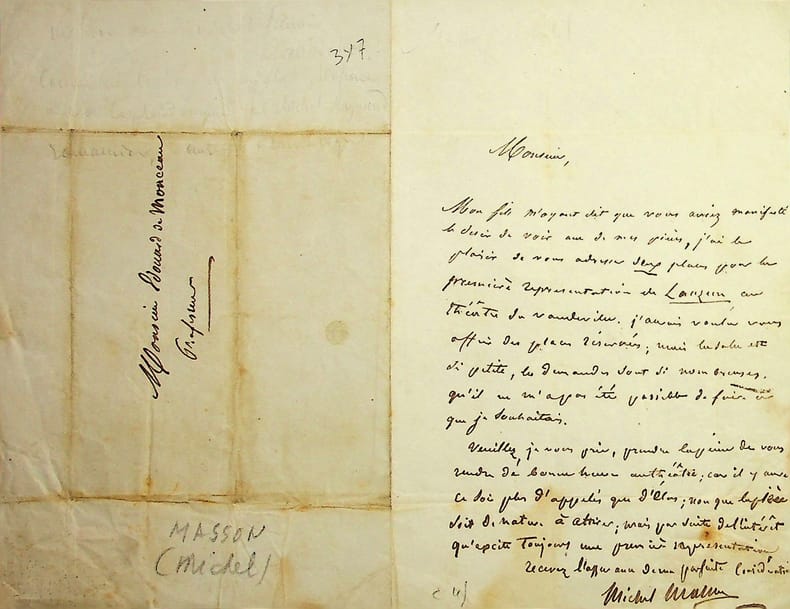 347
Monsieur Edouard de Monceau
Professeur
MASSON
(Michel)
Monsieur,
Mon fils m'ayant dit que vous aviez manifesté
le desir de voir une de mes pièces, j'ai le
plaisir de vous adresser deux places pour la
première représentation de Lauzun au
théâtre du vaudeville. j'aurais voulu vous
offrir des places réservées; mais la salle est
si petite, les demandes sont si nombreuses,
qu'il ne m'a pas été possible de faire ce
que je souhaitais.
Veuillez, je vous prie, prendre la peine de vous
rendre de bonne heure au théâtre; car il y aura
ce soir plus d'appelés que d'élus; non que la pièce
soit de nature à attirer; mais par suite de l'intérêt
qu'excite toujours une première représentation
recevez l'assurance de ma parfaite Considération
Michel Masson